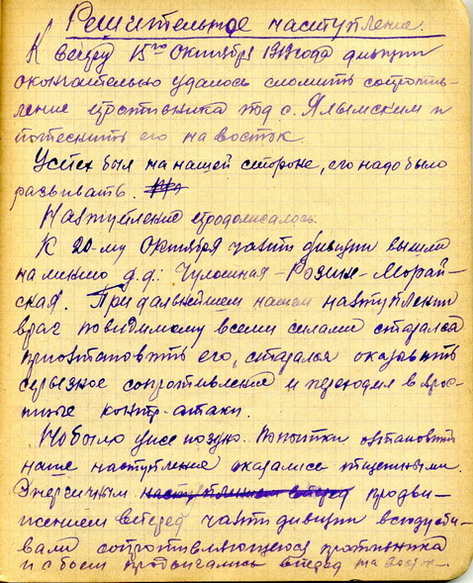 Решительное наступление.
К вечеру 15го Октября 1919 года дивизии
окончательно удалось сломить сопротив-
ление противника под с. Ялымским и
потеснить его на восток.
Успех был на нашей стороне, его надо было
развивать.
Наступление продолжалось.
К 20-му Октября части дивизии вышли
на линию д.д: Чулошная – Розина –Морай-
ская. При дальнейшем нашем наступлении
враг повидимому всеми силами старался
приостановить его, старался оказывать
серьезное сопротивление и переходил в ярос-
тные контр-атаки.
Но было уже поздно. Попытки остановить
наше наступление оказались тщетными.
Энергичным наступлением вперед продви-
жением вперед части дивизии
сопротивляющегося противника
и с боем продвигались вперед на восток.